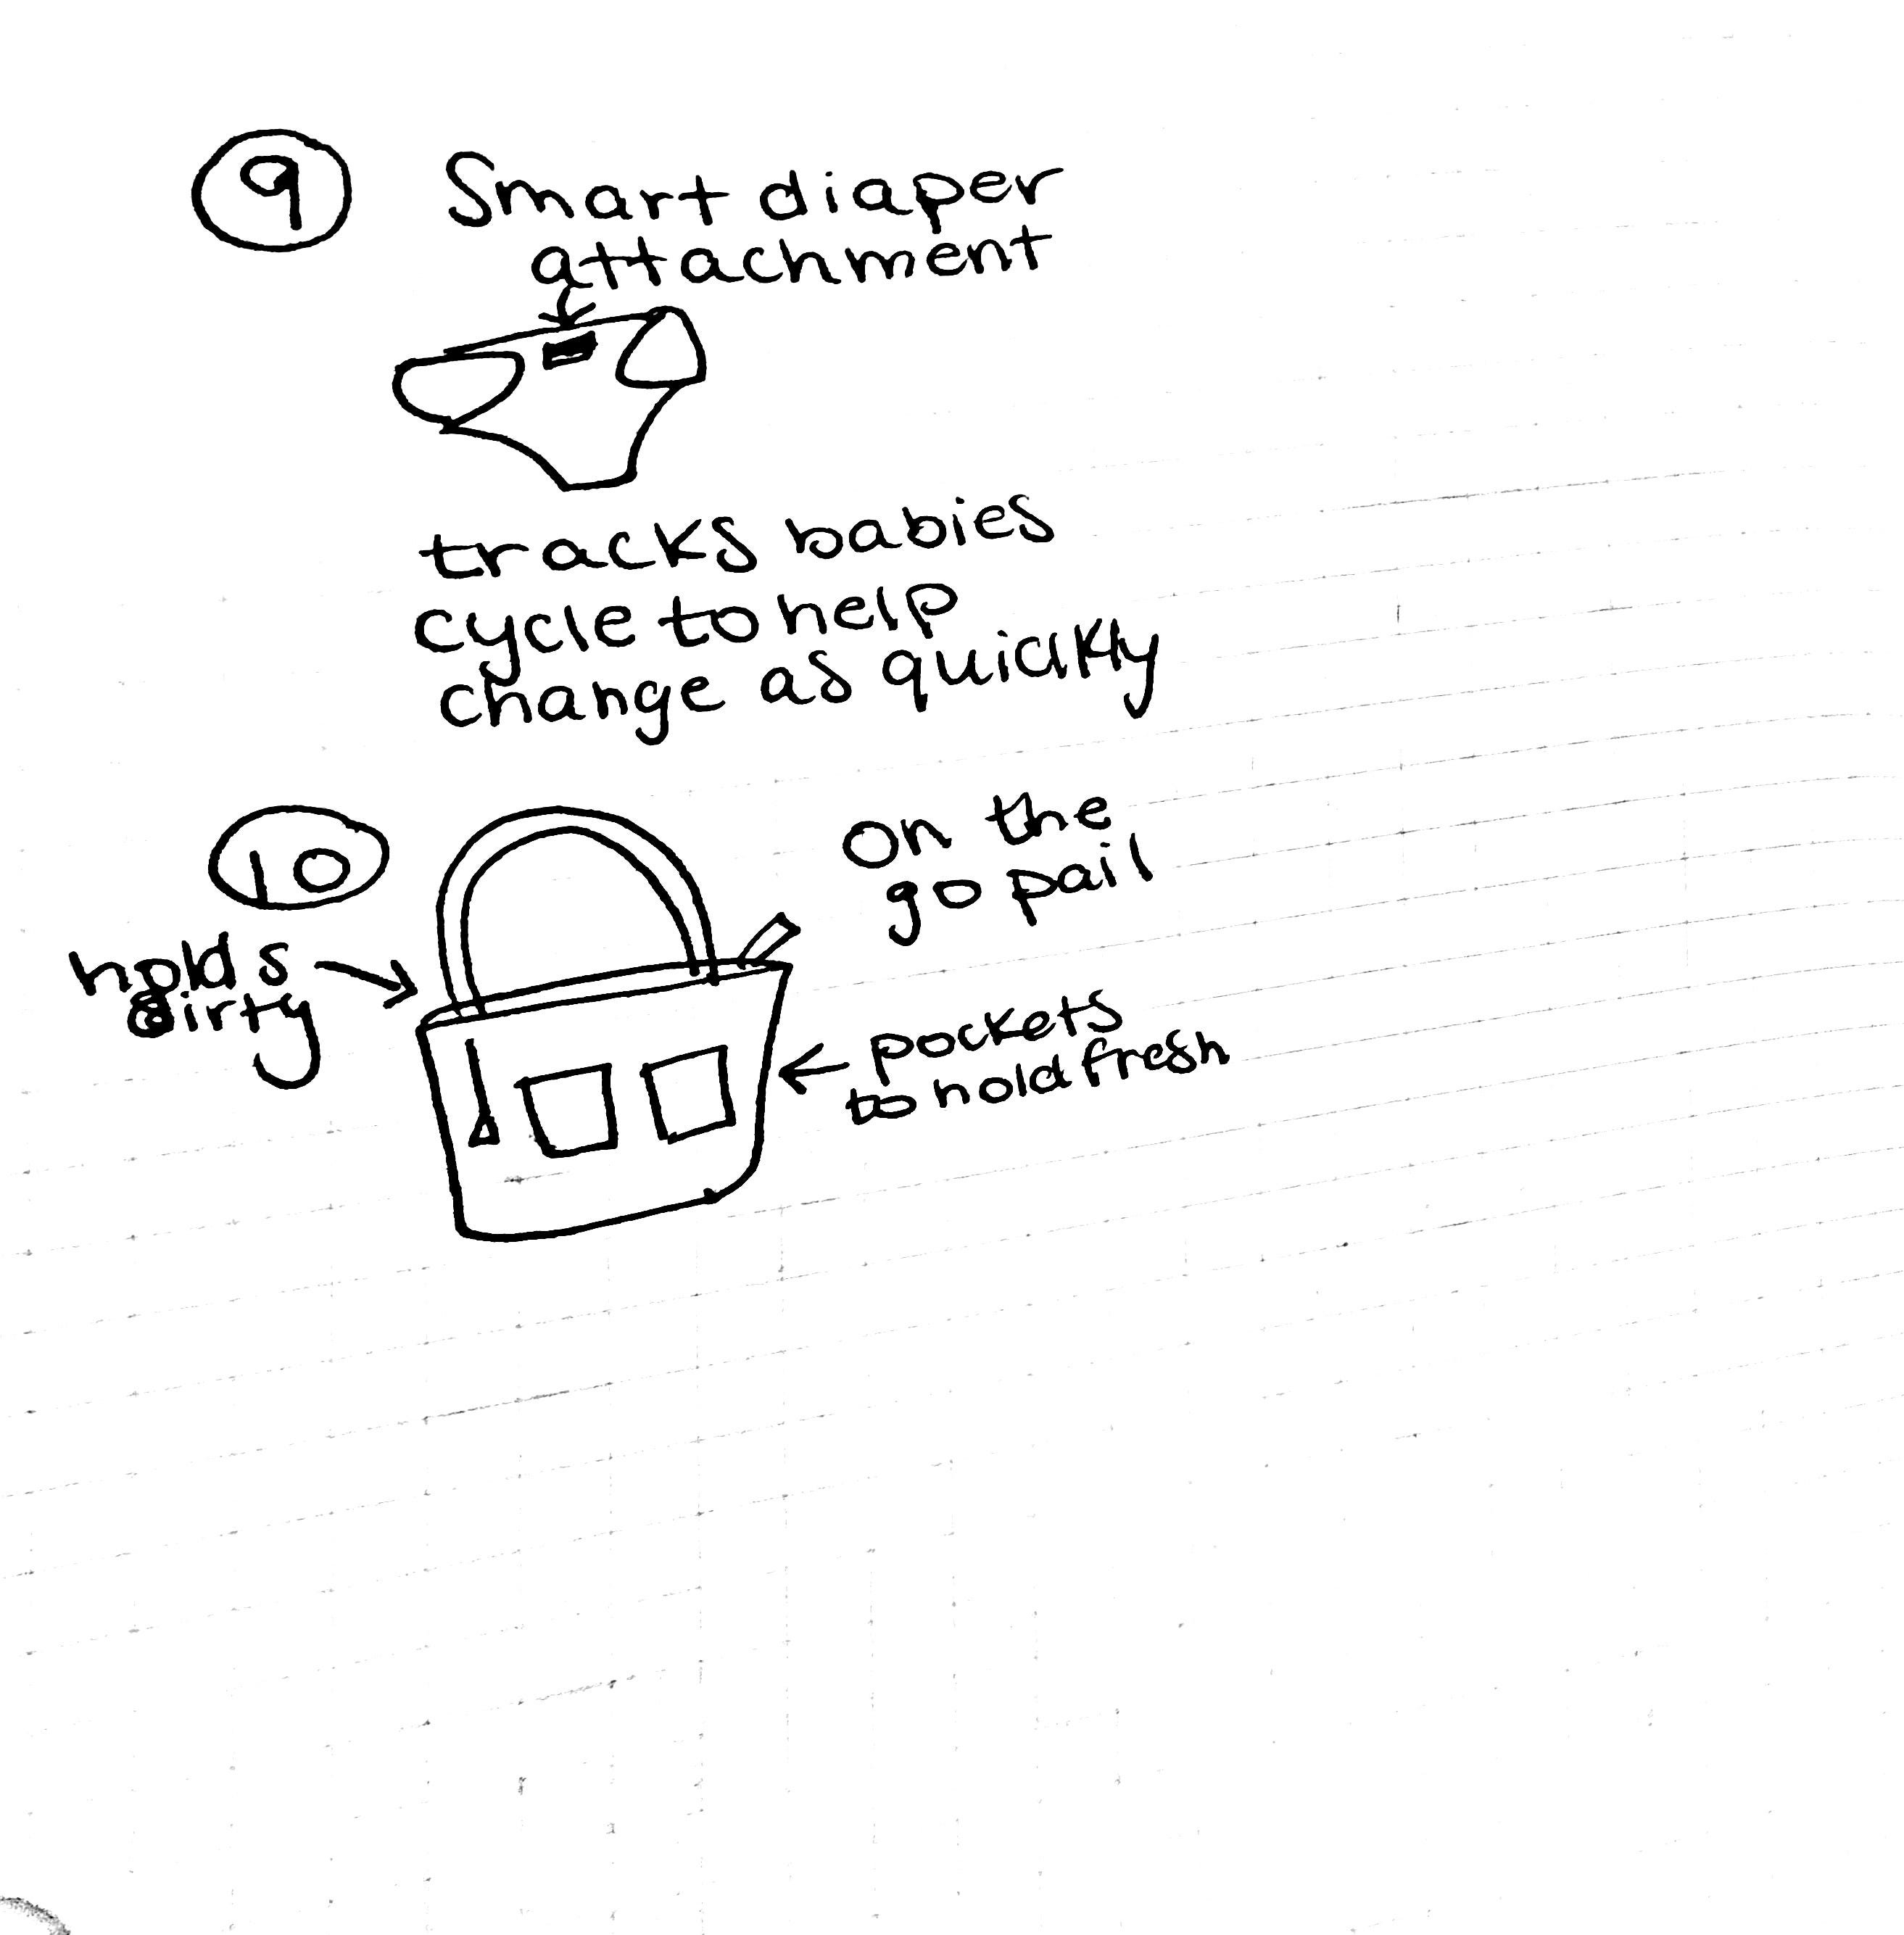 9
Smart diaper
attachment
tracks babies
cycle to help
change as quickly
10
on the
go pail
holds
dirty
pockets
to hold fresh